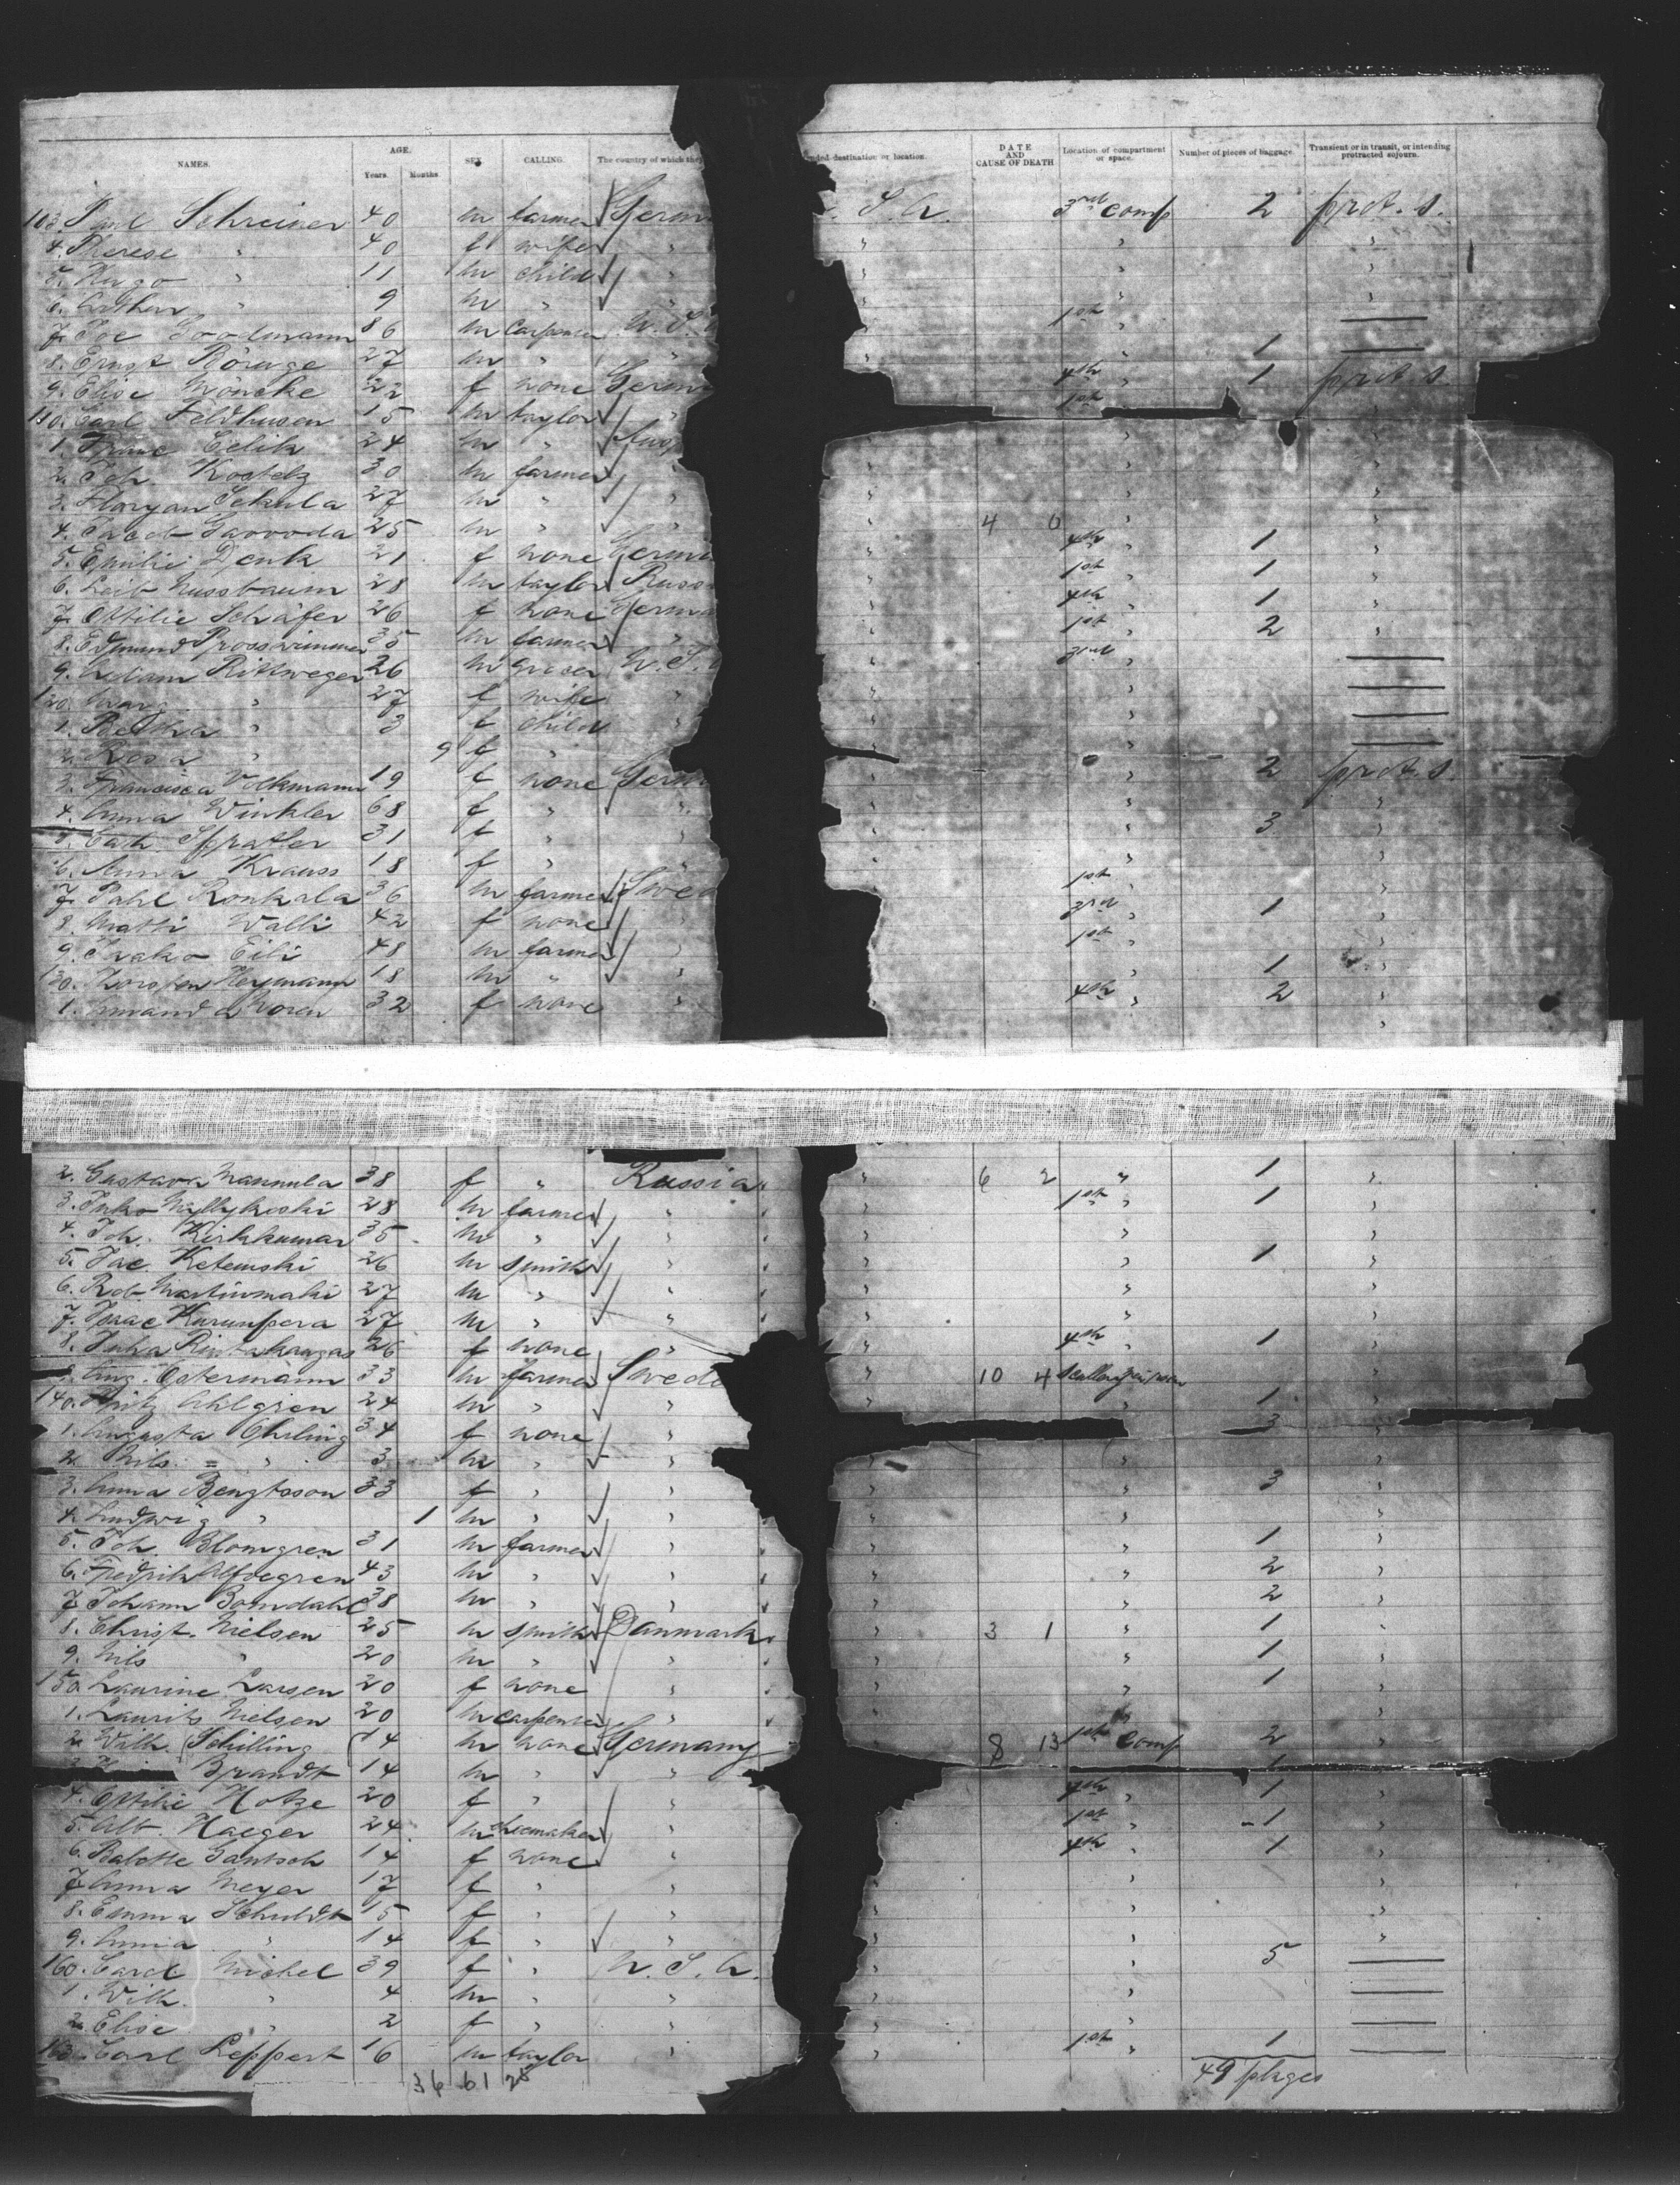 NAMES. AGE. Years. Months. SEX. CALLING. The country of which they nded destination or location. DATE AND CAUSE OF DEATH Location of compartment or space. Number of pieces of baggage. Transient or in transit, or intending protracted sojourn.
103. Paul Schreiner 40 m farmer Germ S. A. 3rd comp 2 prot. s.
4. Therese " 40 f wife " " " "
5. Hugo " 11 m child " " " "
6. Arthur " 9 m " " " " "
7. Joe Goodmann 36 m Carpenter U. S. 1st "
8. Ernst 27 m " " " 1
9. Elise Möncke 22 f none Germ 4th " 1 prot. s.
110. Carl Feldhusen 15 m taylor " 1st
1. Franz Celik 24 m " Aus " " "
2. Joh. Kostelz 30 m farmer " " " "
3. Floryan Sekula 27 m " " " " "
4. Jacob 25 m " " 4 0 " "
5. Emilie Denk 21 f none Germ " 4th " 1 "
6. Leib Nussbaum 28 m taylor Russ " 1st " 1 "
7. Ottilie Schäfer 26 f none Germa " 4th " 1 "
8. Edmund 35 m farmer " " 1st " 2 "
9. Adam Rittweger 26 m grocer U. S. " 3rd "
120. Marg. " 27 f wife " " "
1. Bertha " 3 f child " " "
2. Rosa " 9 f " " "
3. Francisca Volkmann 19 f none Germ " " 2 prot. s.
4. Anna Winkler 68 f " " " " "
5. Cath. 31 f " " " " 3 "
6. Anna Krauss 18 f " " " " "
7. Pahl Ronkala 36 m farmer Swed " 1st "
8. Matti Walli 42 f none " " 3rd " 1 "
9. Eili 48 m farmer " " 1st " "
130. Heymann 18 m " " " " 1 "
1. Amanda Noren 32 f none " " 4th " 2 "
2. Gustava Mannula 38 f " Russia " 6 2 " 1 "
3. Juho Myllykoski 28 m farmer " " 1st " 1 "
4. Joh. 35 m " " " " "
5. Jac. 26 m smith " " " 1 "
6. Rob. 27 m " " " " "
7. Isaac 27 m " " " " "
8. Juha Rintakangas 26 f none " " 4th " 1 "
9. Aug. Ostermann 33 m farmer Swede " 10 4 "
140. Fritz Ahlgren 24 m " " " " 1 "
1. Augusta Ohrling 34 f none " " 3 "
2. Nils = " 3 m " " " " "
3. Anna Bengtsson 33 f " " " " 3 "
4. Ludwig " 1 m " " " " "
5. Joh. Blomgren 31 m farmer " " " 1 "
6. Fredrik 43 m " " " " 2 "
7. Johann Bomdahl 38 m " " " " 2 "
8. Christ. Nielsen 25 m smith Danmark " 3 1 " 1 "
9. Nils " 20 m " " " " 1 "
150. Laurine Larsen 20 f none " " " 1 "
1. Laurits Nielsen 20 m carpenter " " "
2. Wilh. Schilling 14 m none Germany " 8 13 1st comp 2 "
3. Brandt 14 m " " 1
4. Ottilie Hotze 20 f " " 4th " 1 "
5. Alb. Haeger 24 m shoemaker " " 1st " 1 "
6. Babette 14 f none " " 4th " 1 "
7. Anna Meyer 17 f " " " " "
8. Emma Schuldt 15 f " " " " "
9. Anna " 14 f " " " " "
160. Michel 39 f " U. S. A. " " 5
1. Wilh. " 4 m " " " "
2. Elise " 2 f " " " "
163. Carl Leppert 16 m taylor " " 1st " 1
36 61 28 49 plcges